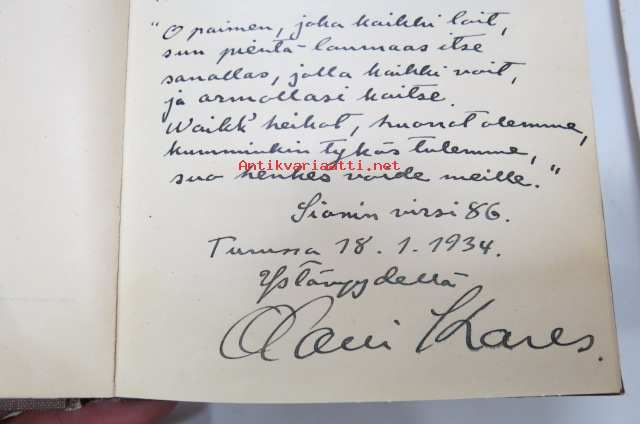 "O paimen, joka kaikki loit,
sun pientä laumaas itse
sanallas, jolla kaikki voit,
ja armollasi kaitse.
Waikk' heikot, huonot olemme,
kumminkin tykös tulemme,
Antikvariaatti.net
suo henkes voide meille."
Sionin virsi 86.
Turussa 18.1.1934.
Ystävyydellä
Olavi Kares.